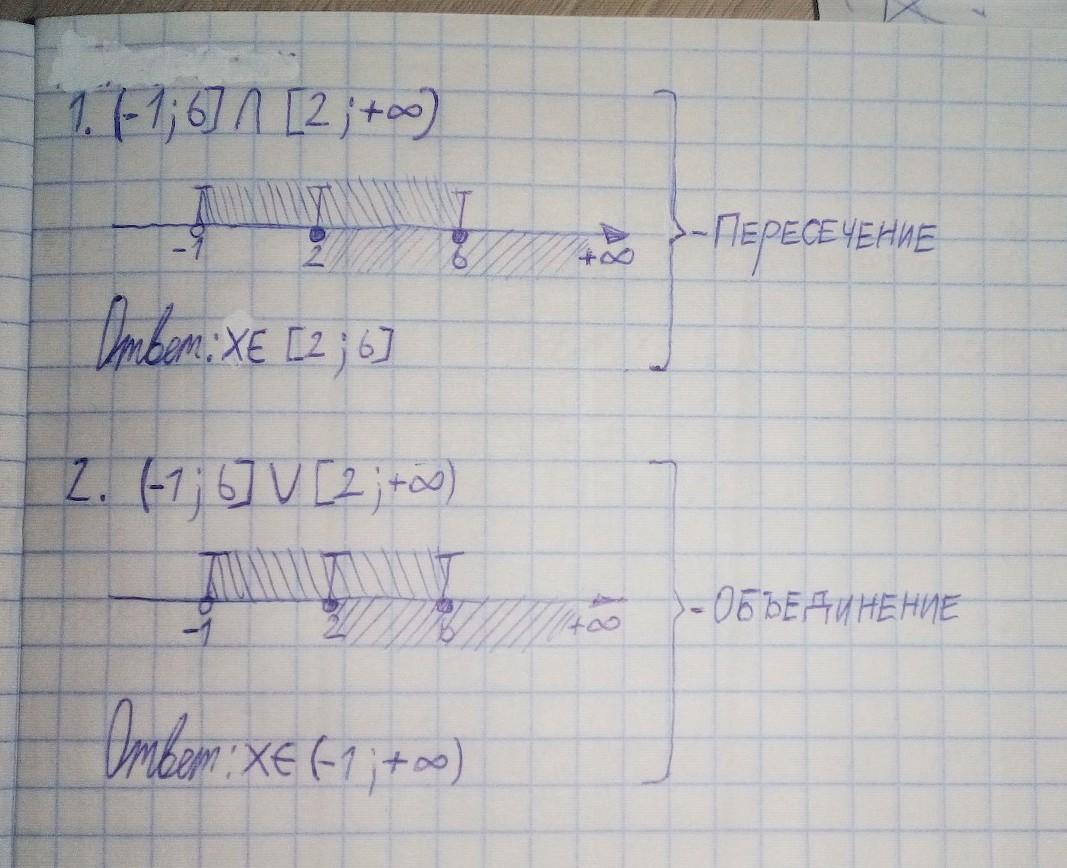 1. (-1; 6] ∩ [2; +∞)
-1 2 6 +∞
- ПЕРЕСЕЧЕНИЕ
Ответ: x∈ [2; 6]
2. (-1; 6] ∪ [2; +∞)
-1 2 6 +∞
- ОБЪЕДИНЕНИЕ
Ответ: x∈ (-1; +∞)